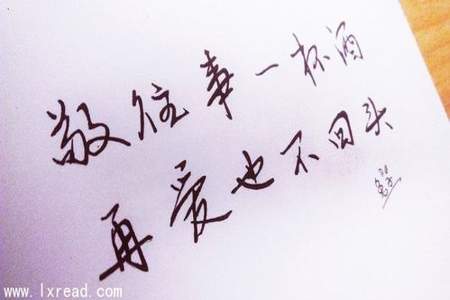 敬往事一杯酒
再爱也不回头
www.lxread.com